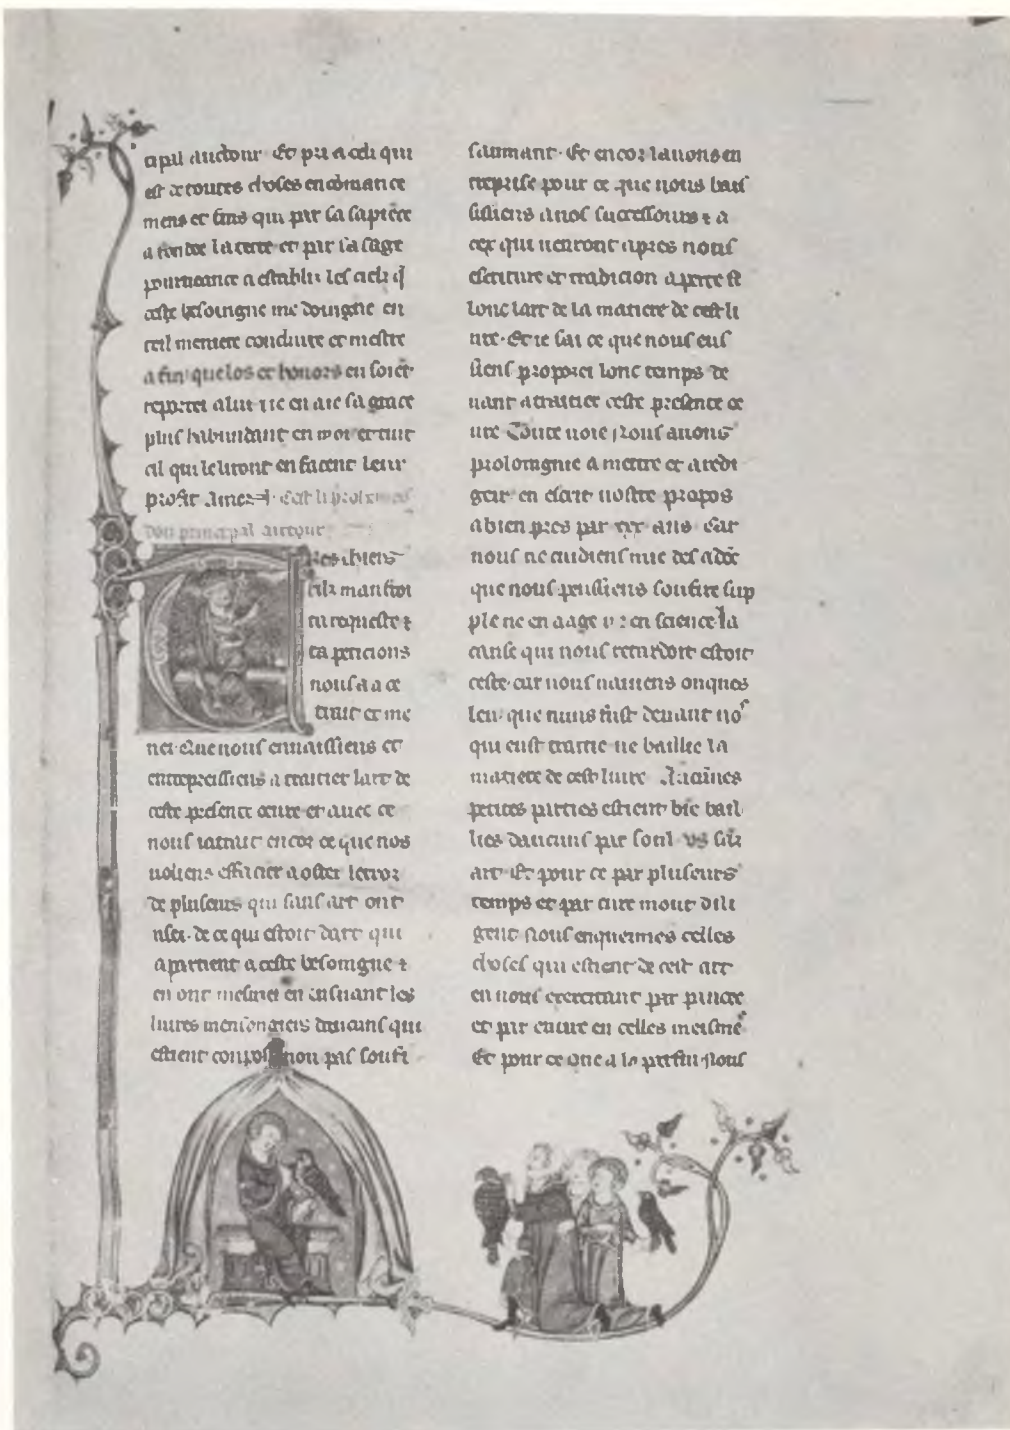 cipal auctour. Et pri a celi qui
est de toutes choses encōmance
mens et fins qui par sa sapiēce
a fondee la terre et par sa sage
pourueance a establis les ciels q̄
ceste besoingne me doingne en
tel meniere conduire et mestre
a fin que los et honors en soiēt
reportei a lui
plus habundant en moi et tuit
cil qui le liront en facent leur
profit amen. Cest li prologues
dou principal auctour
Tres chiers
requeste ⁊
ta peticions
nous a a ce
duit et me
nei. Que nous
entrepreissiens a traitier lart de
ceste presente œure et auec ce
nous encor ce que nos
a oster lerror
de pluseurs qui sans art ont
usei. de ce qui estoit dart qui
apartient a ceste besoingne ⁊
en ont en ensuiant les
liures mensongiers daucuns qui
estient conposei non pas soufi
saumant. Et encor lauons en
treprise pour ce que nous bais
sissiens a nos successours ⁊ a
cex qui uenront apres nous
escriture et tradicion aperte se
lonc lart de la matiere de cest li
ure. Et ie sai ce que nous eus
siens proposei lonc temps de
uant a traitier ceste presente oe
ure Toute uoie nous auons
prolongnie a mettre et a redi
geir en escrit nostre propos
a bien pres par xxx ans. Car
nous ne cudiens mie des adōc
que nous peussiens soufire sup
ple ne en aage ne en science la
cause qui nous retardoit estoit
ceste. car nous nauiens onques
leu. que nuns fust deuant no9
qui eust traitie ne baillie la
matiere de cest liure
petites parties estient biē bail
lies daucuns par soul us sāz
art. Et pour ce par pluseurs
temps et par cure mout dili
gent nous enqueimes celles
choses qui estient de cest art
en nous exercitant par pancee
et par enure en celles meismes
Et pour ce que a la parfin nous